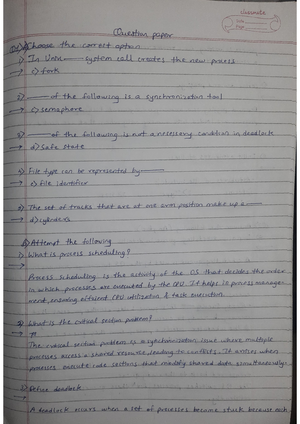 classmate
Date
Page
Question paper
Q1) Choose the correct option
1) In Unix ——— system call creates the new process
→ c) fork
2) ——— of the following is a synchronization tool
→ c) semaphore
3) ——— of the following is not a necessary condition in deadlock
→ a) Safe State
4) File type can be represented by ———
→ c) file identifier
5) The set of tracks that are at one arm position make up a ———
→ d) cylinders
b) Attempt the following
1) What is process scheduling?
→
Process scheduling is the activity of the OS that decides the order
in which processes are executed by the CPU. It helps in process manage-
ment, ensuring efficient CPU utilization & task execution
2) What is the critical section problem?
→
The critical section problem is a synchronization issue where multiple
processes access a shared resource, leading to conflicts. It arises when
processes execute code sections that modify shared data simultaneously.
3) Define deadlock
→
A deadlock occurs when a set of processes become stuck because each